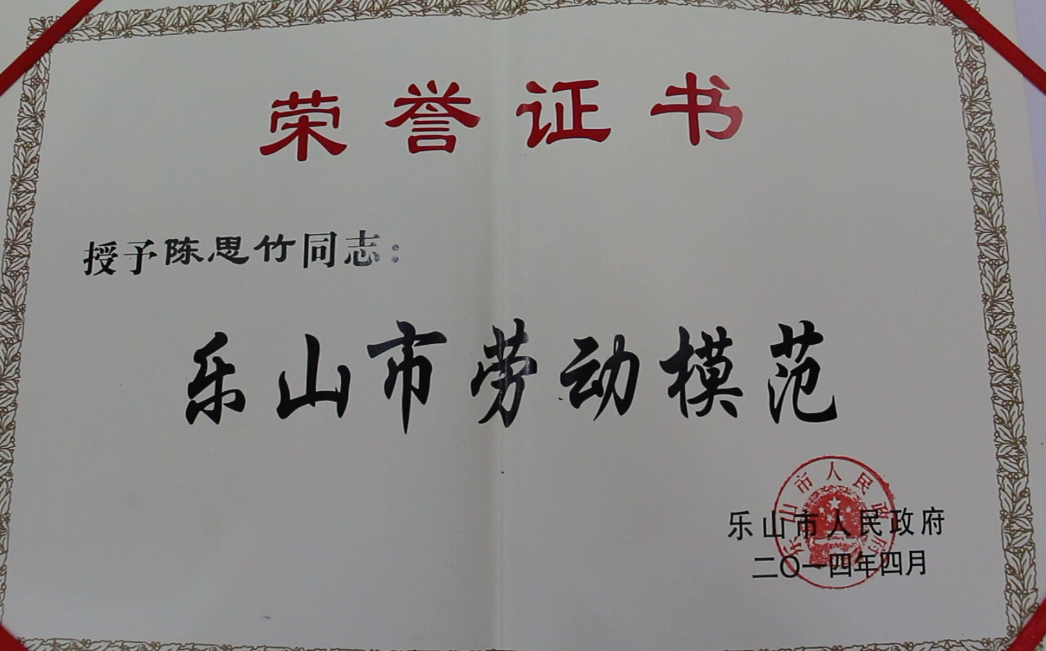 荣誉证书
授予陈思竹同志：
乐山市劳动模范
乐山市人民政府
乐山市人民政府
二〇一四年四月